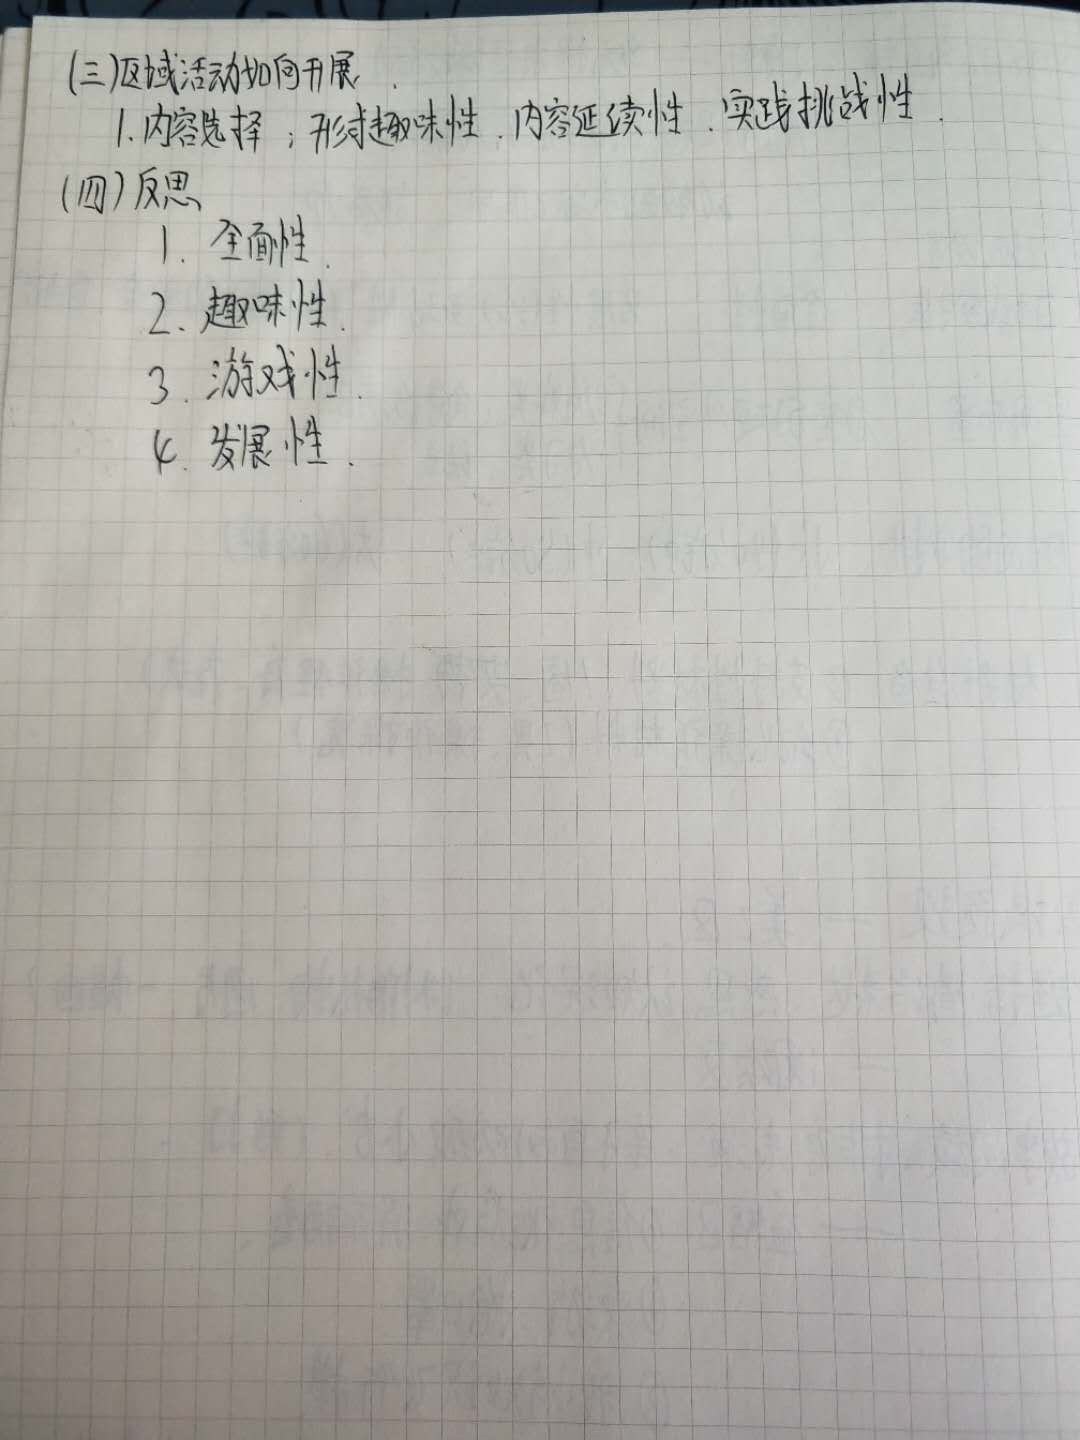 (三)区域活动如何开展.
1.内容选择;形式趣味性.内容延续性.实践挑战性.
(四)反思
1.全面性.
2.趣味性.
3.游戏性.
4.发展性.